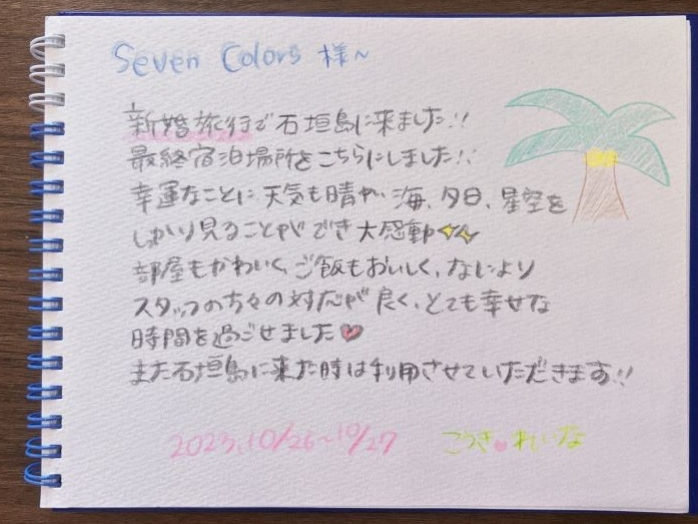 Seven Colors 様~
新婚旅行で石垣島に来ました!!
最終宿泊場所をこちらにしました!!
幸運なことに天気も晴れ、海、夕日、星空を
しっかり見ることができ大感動
部屋もかわいく、ご飯もおいしく、なにより
スタッフの方々の対応が良く、とても幸せな
時間を過ごせました♥
また石垣島に来た時は利用させていただきます!!
2023.10/26~10/27
こうき♥れいな